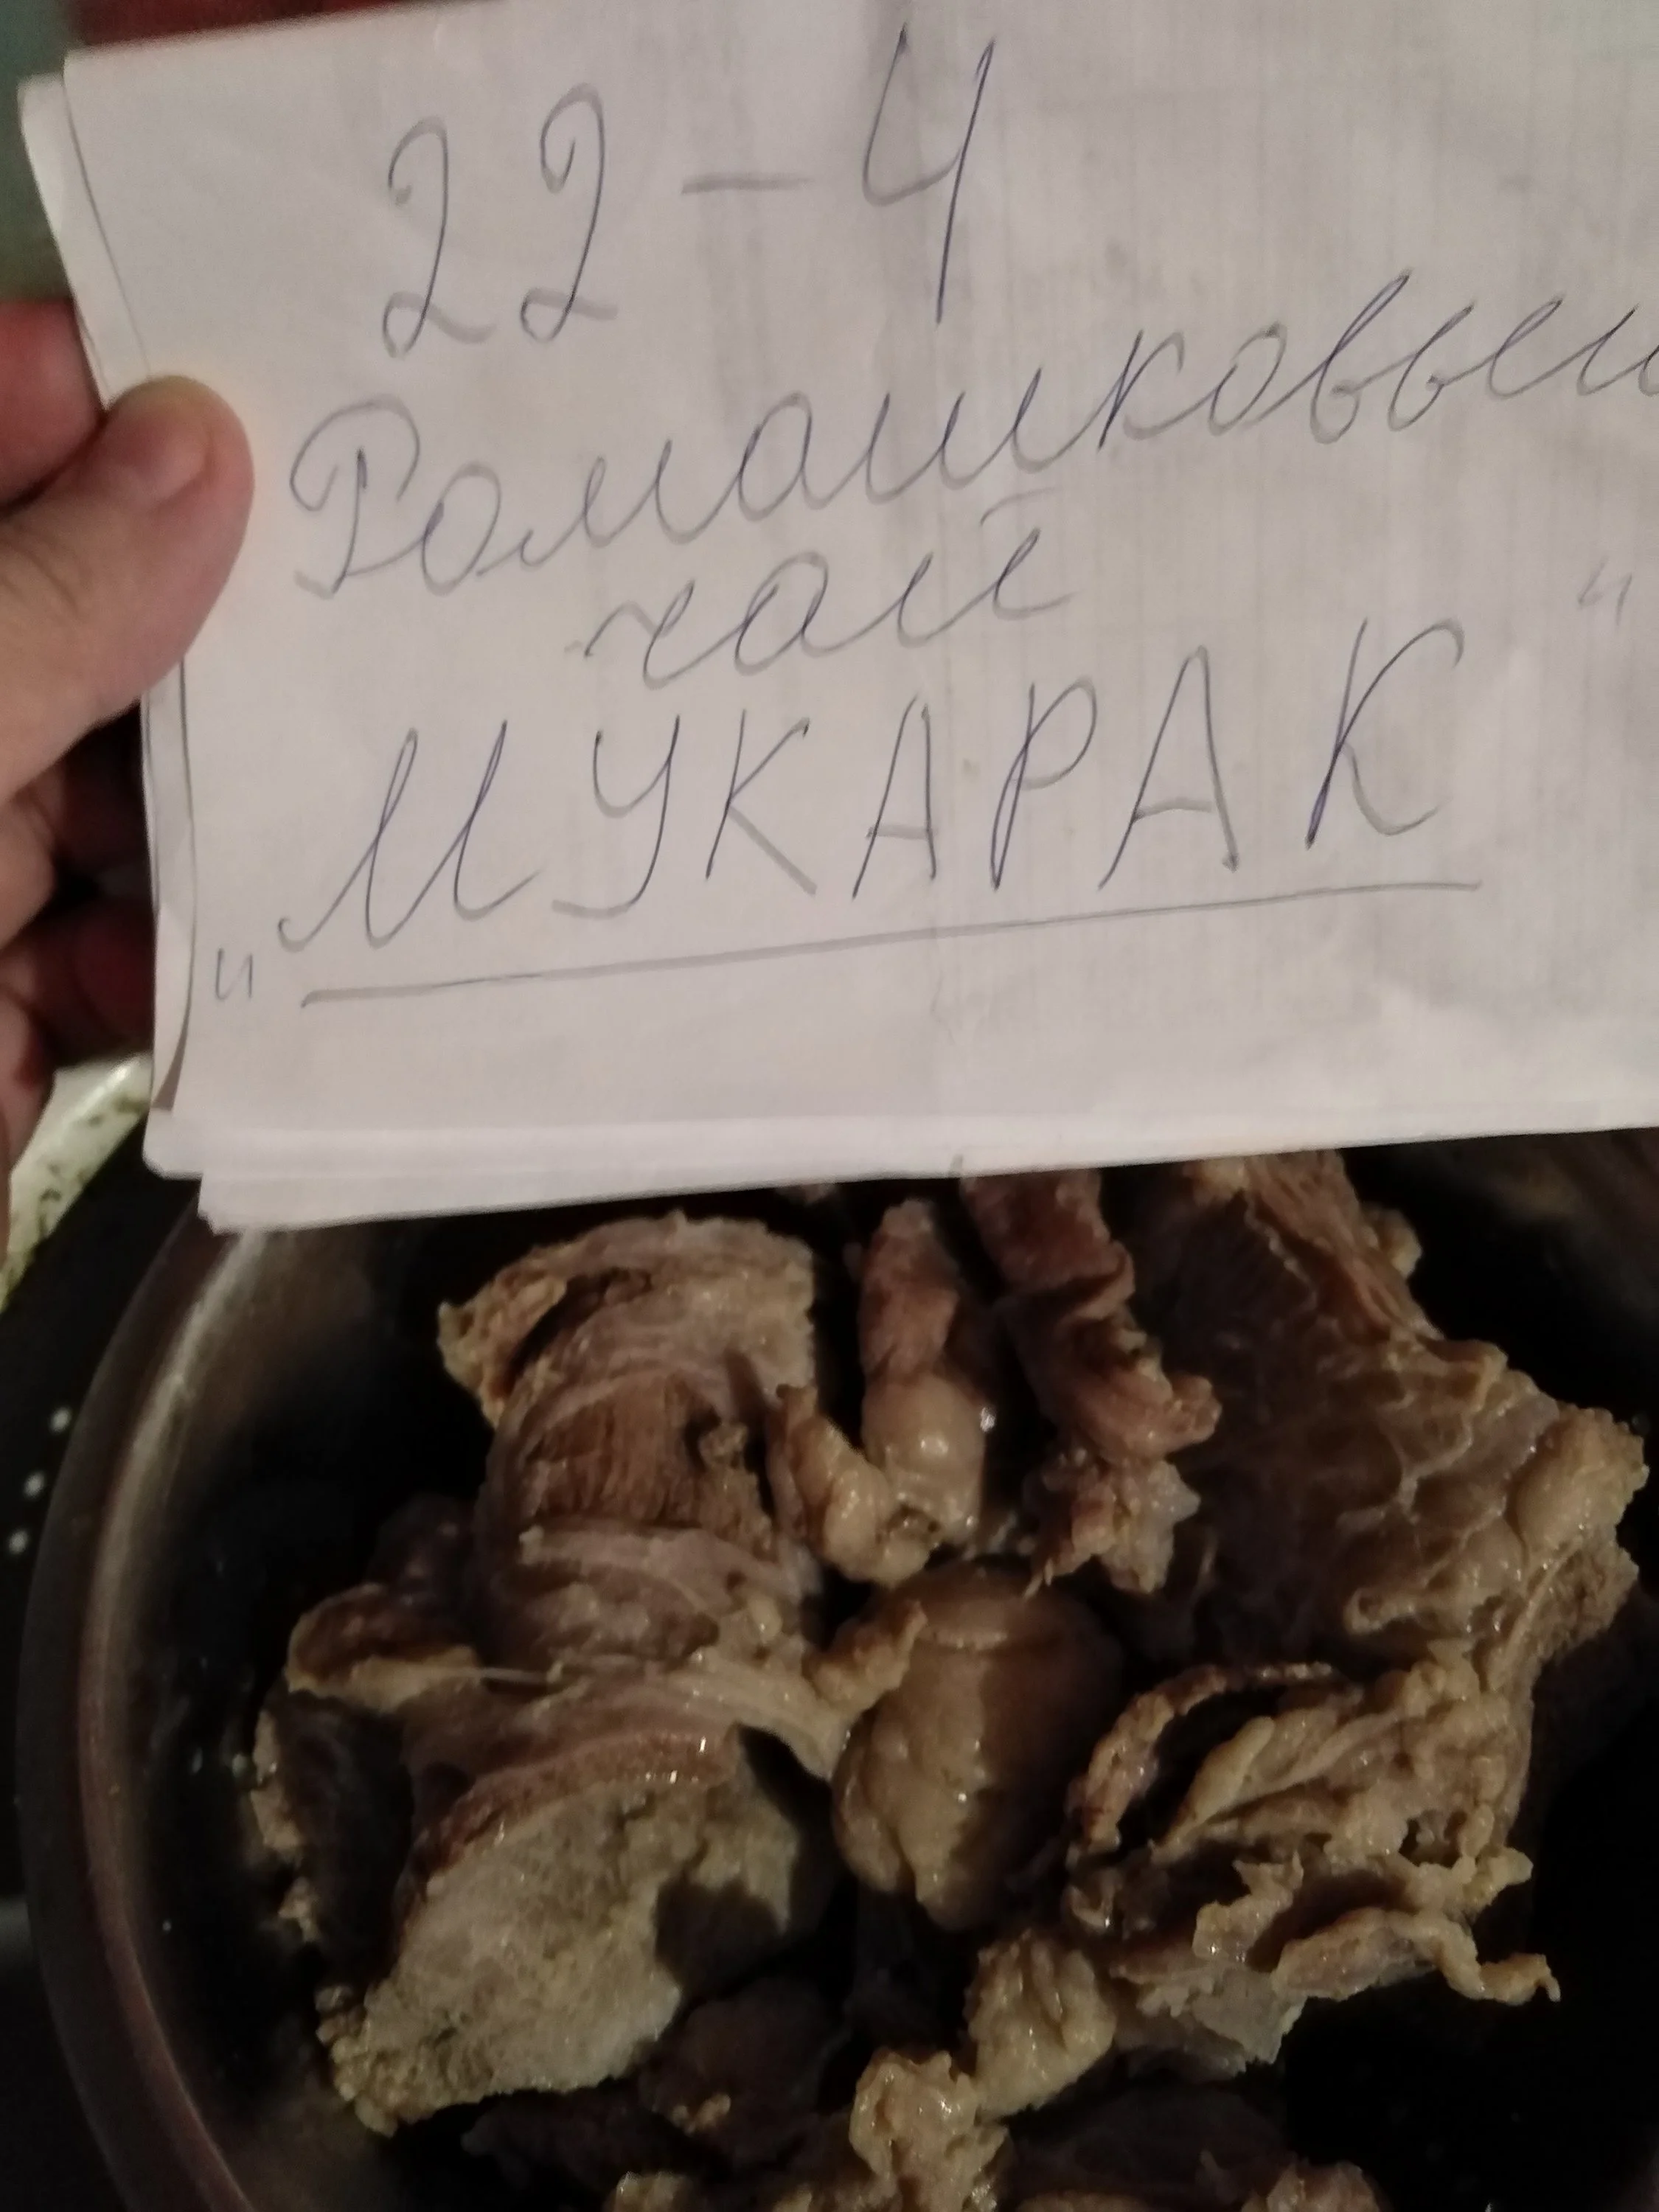 22-4
Ромашковый
чай
"МУКАРАК"